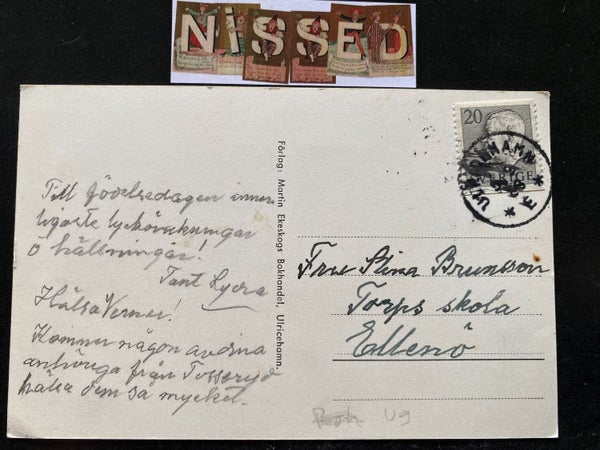 NISSED
Till födelsedagen inner-
ligaste lyckönskningar
o hälsningar!
Tant Lydia
Hälsa Verner!
Kommer någon av dina
anhöriga från Tosseryd
hälsa dem så mycket.
Förlag: Martin Ekeskogs Bokhandel, Ulricehamn.
20
SVERIGE
Fru Stina Brunsson
Torps skola
Ellenö
U9